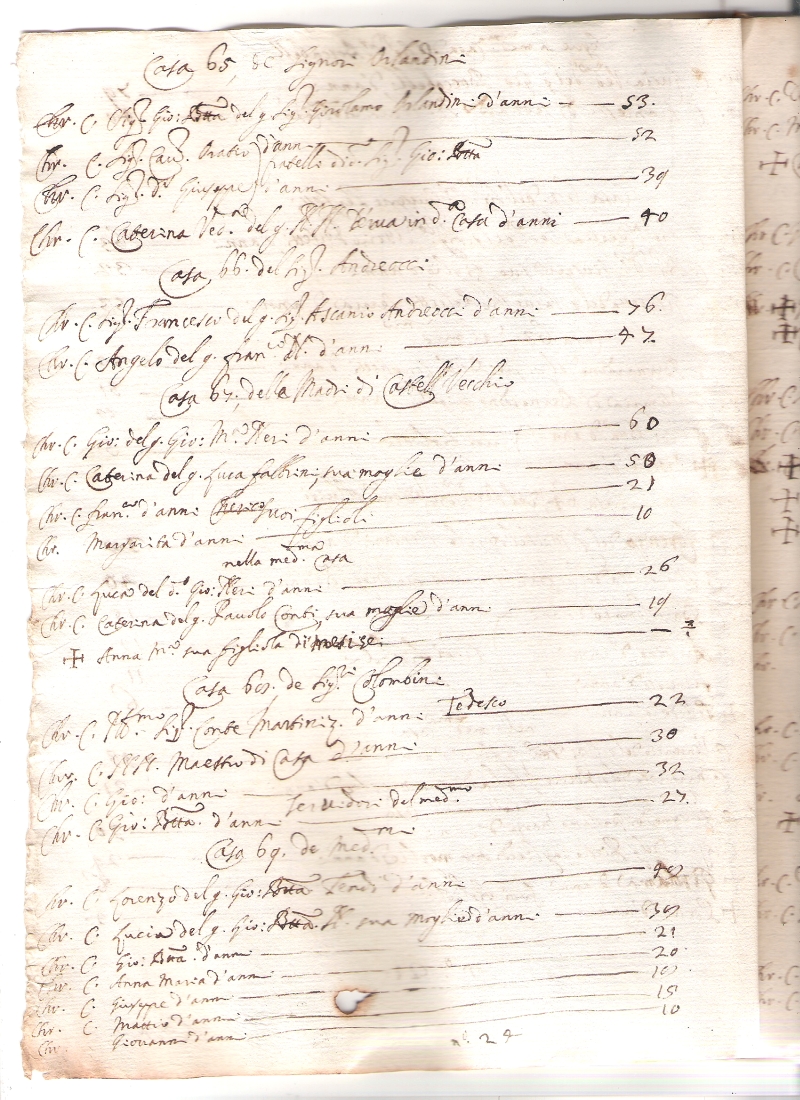 Casa 65, de Signori Orlandini
Chr. C. Sig.r Gio: Batta del q. Sig.r Girolamo Orlandini d'anni — 53.
Chr. C. Sig.r Cav.r Oratio d'anni — 52
fratelli di d.o Sig.r Gio: Batta
Chr. C. Sig.r D.r Giuseppe d'anni — 39
Chr. C. Caterina del q. N.N. serva in d.a Casa d'anni — 40
Casa 66. del Sig.r Andreocci
Chr. C. Sig.r Francesco del q. Sig.r Ascanio Andreocci d'anni — 76.
Chr. C. Angelo del q. Fran.co d'anni — 47.
Casa 67, delle Madri di Castell Vecchio
Chr. C. Gio: del q. Gio: M.a Neri d'anni — 60
Chr. C. Caterina del q. Luca Fabbrini, sua moglie d'anni — 50
Chr. C. Fran.co d'anni — 21
suoi figlioli
Chr. Margarita d'anni — 10
nella med.ma Casa
Chr. C. Luca del d.o Gio: Neri d'anni — 26
Chr. C. Caterina del q. Pavolo Conti, sua moglie d'anni — 19
✝ Anna M.a sua figliola di mesi
Casa 68. de Sig.ri Colombini
Chr. C. Ill.mo Sig.r Conte Martiniz. d'anni Tedesco — 22
Chr. C. N.N. Maestro di Casa d'anni — 30
Chr. C. Gio: d'anni — 32
servidori del med.mo
Chr. C. Gio: Batta d'anni — 27.
Casa 69. de Med.mi
Chr. C. Lorenzo del q. Gio: Batta d'anni — 48
Chr. C. Lucia del q. Gio: Batta N. sua moglie d'anni — 38
Chr. C. Gio: Batta d'anni — 21
Chr. C. Anna Maria d'anni — 20
Chr. C. Giuseppe d'anni — 18
Chr. C. Mattio d'anni — 15
Chr. Giovanni d'anni — 10
n.o 24